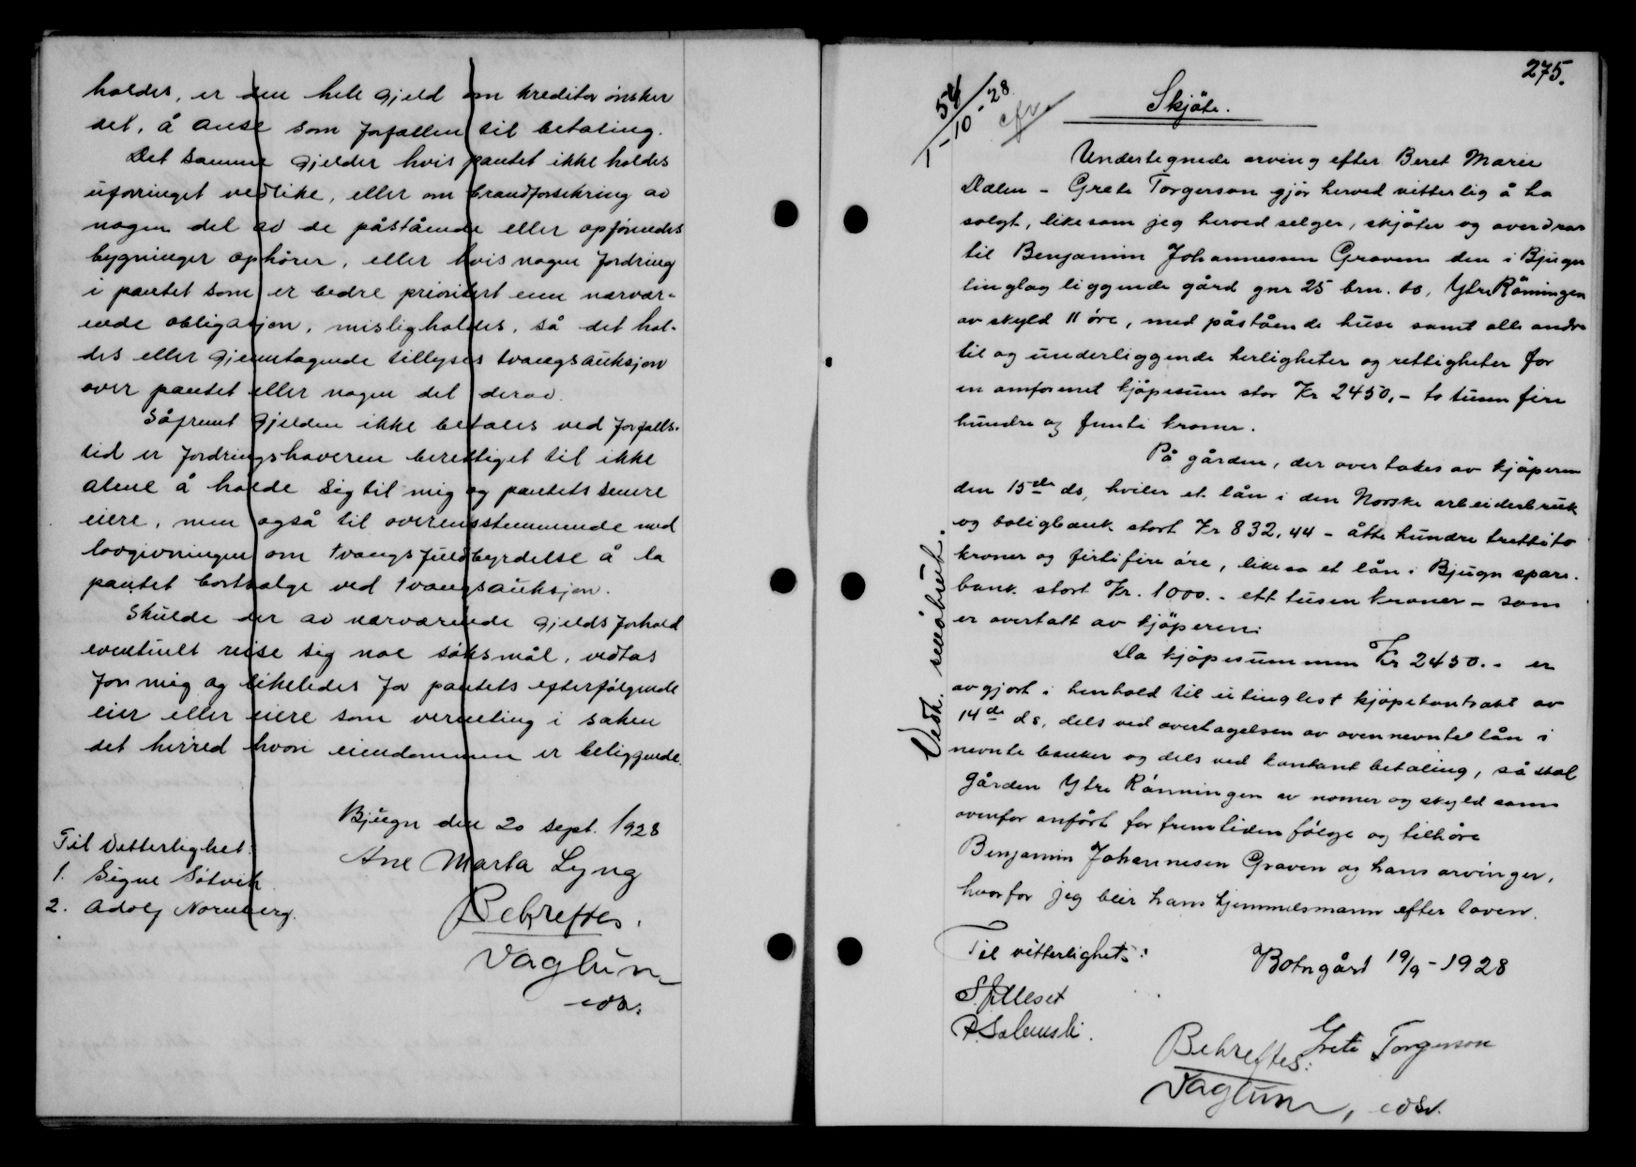 holdes, er den hele gjeld om kreditor ønsker
det, å anse som forfallen til betaling.
Det samme gjelder hvis pantet ikke holdes
uforringet vedlike, eller om brandforsikring av
nogen del av de påstående eller opførendes
bygninger ophører, eller hvis nogen fordring
i pantet som er bedre prioritert enn nærvær-
ende obligasjon, misligholdes, så det hol-
des eller gjentagende tillyses tvangsauksjon
over pantet eller nogen del derav.
Såfremt gjelden ikke betales ved forfalls-
tid er fordringshaveren berettiget til ikke
alene å holde sig til mig og pantets senere
eiere, men også til overensstemmende med
lovgivningen om tvangsfuldbyrdelse å la
pantet bortsælge ved tvangsauksjon.
Skulde der av nærværende gjeldsforhold
eventuelt reise sig noe søksmål, vedtas
for mig og likeledes for pantets efterfølgende
eier eller eiere som verneting i saken
det herred hvori eiendommen er beliggende.
Bjugn den 20 sept. 1928
Til Vitterlighet:
Ane Marta Lyng
1. Signe Sølvik
2. Adolf Nornberg.
Bekreftes.
Vaglum
cds.
275.
54
1/10-28
Skjøte.
Undertegnede arving efter Beret Marie
Dalen - Grete Torgerson gjør herved vitterlig å ha
solgt, likesom jeg herved selger, skjøter og overdrar
til Benjamin Johannessen Graven den i Bjugn
tinglag liggende gård gnr 25 brn. 10, Ytre Rønningen
av skyld 11 øre, med påstående huse samt alle andre
til og underliggende herligheter og rettigheter for
en omforenet kjøpesum stor Kr 2450,- to tusen fire
hundre og femti kroner.
På gården, der overtakes av kjøperen
den 15de ds, hviler et lån i den Norske arbeiderbruk
og boligbank stort Kr 832,44 - åtte hundre trettito
kroner og førtifire øre, likeså et lån i Bjugn spare-
bank stort Kr. 1000.- ett tusen kroner - som
er overtatt av kjøperen.
Da kjøpesummen Kr 2450.- er
avgjort i henhold til utinglest kjøpekontrakt av
14de ds, dels ved overtagelsen av ovennevnte lån i
nevnte banker og dels ved kontant betaling, så skal
gården Ytre Rønningen av nomer og skyld som
ovenfor anført for fremtiden følge og tilhøre
Benjamin Johannesen Graven og hans arvinger,
hvorfor jeg blir hans hjemmelsmann efter loven.
Vedk. småbruk.
Til vitterlighet:
Botngård 19/9-1928
S. Jilleset
Grete Torgerson
Bekreftes:
Vaglum, cds.